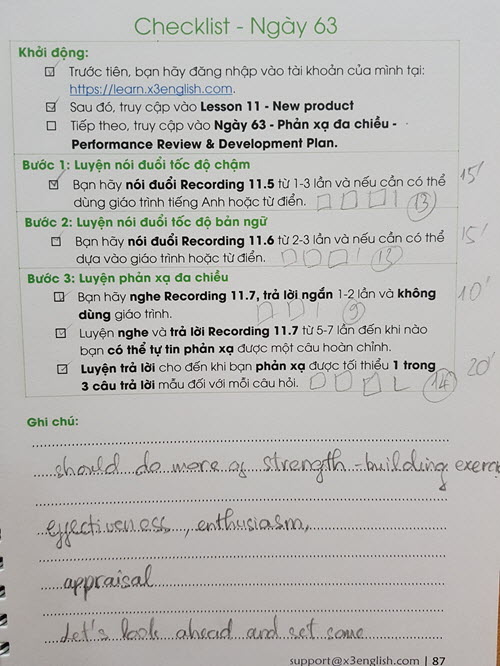 Checklist - Ngày 63
Khởi động:
Trước tiên, bạn hãy đăng nhập vào tài khoản của mình tại:
https://learn.x3english.com.
Sau đó, truy cập vào Lesson 11 - New product
Tiếp theo, truy cập vào Ngày 63 - Phản xạ đa chiều -
Performance Review & Development Plan.
Bước 1: Luyện nói đuổi tốc độ chậm
Bạn hãy nói đuổi Recording 11.5 từ 1-3 lần và nếu cần có thể
dùng giáo trình tiếng Anh hoặc từ điển.
13
15'
Bước 2: Luyện nói đuổi tốc độ bản ngữ
Bạn hãy nói đuổi Recording 11.6 từ 2-3 lần và nếu cần có thể
dựa vào giáo trình hoặc từ điển.
13
15'
Bước 3: Luyện phản xạ đa chiều
Bạn hãy nghe Recording 11.7, trả lời ngắn 1-2 lần và không
dùng giáo trình.
9
10'
Luyện nghe và trả lời Recording 11.7 từ 5-7 lần đến khi nào
bạn có thể tự tin phản xạ được một câu hoàn chỉnh.
Luyện trả lời cho đến khi bạn phản xạ được tối thiểu 1 trong
3 câu trả lời mẫu đối với mỗi câu hỏi.
14
20'
Ghi chú:
should do more of strength-building exerc
effectiveness, enthusiasm,
appraisal
Let's look ahead and set some
support@x3english.com | 87